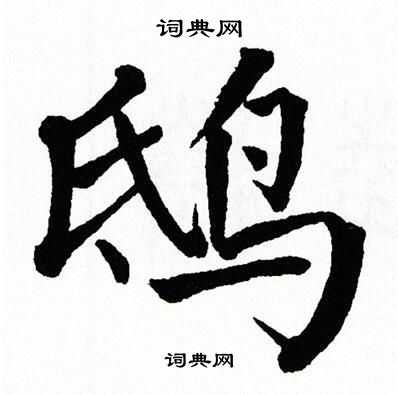 词典网
鸱
词典网